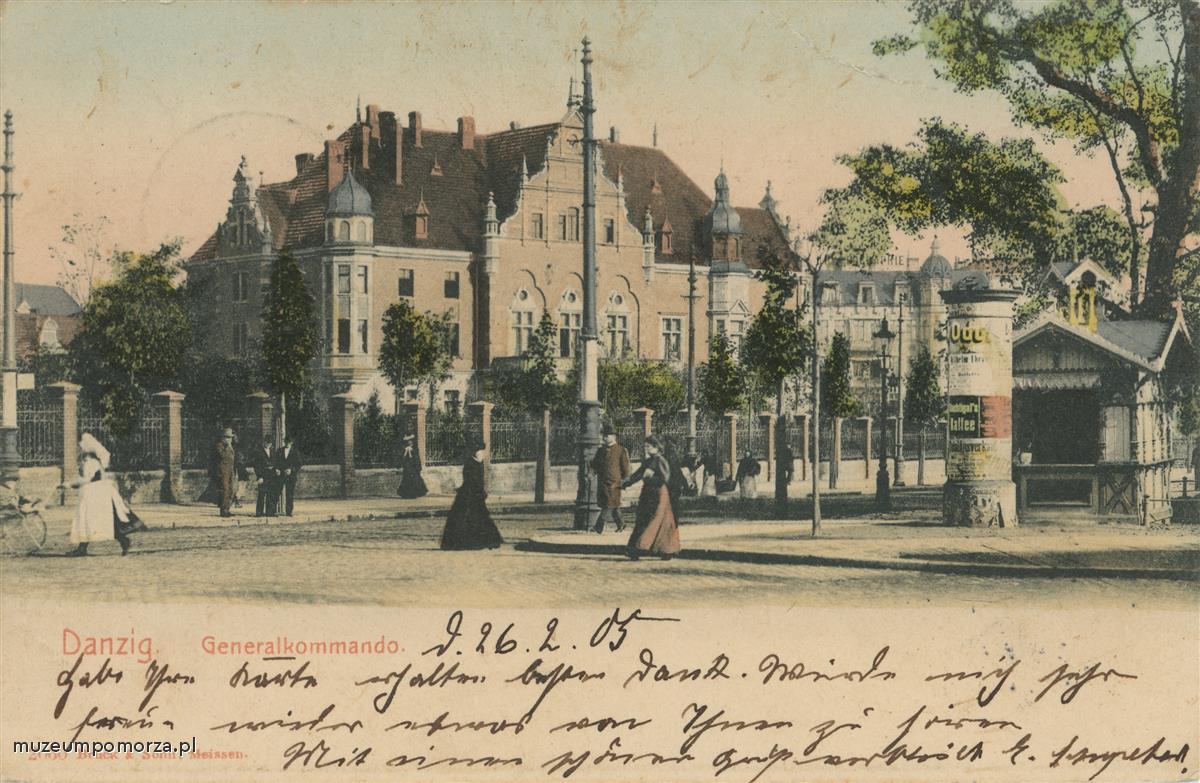 Odol
Kaffee
Danzig. Generalkommando. d. 26. 2. 05
Habe Ihre Karte erhalten besten Dank. Würde mich sehr
freun wieder etwas von Ihnen zu hören
Mit einen schönen Gruß verbleib E.
2060 Brück & Sohn, Meissen.
muzeumpomorza.pl